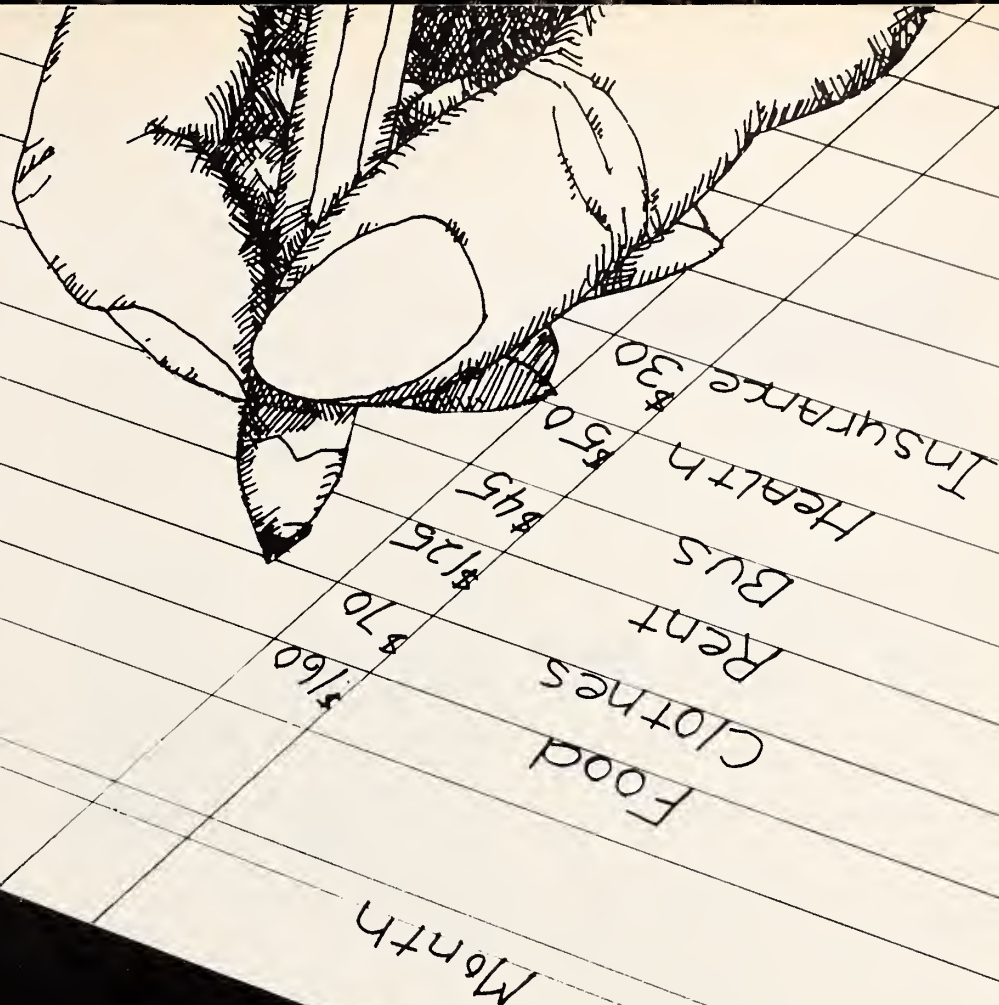 Month
Food $160
Clothes $70
Rent $125
Bus $45
Health $50
Insurance $30